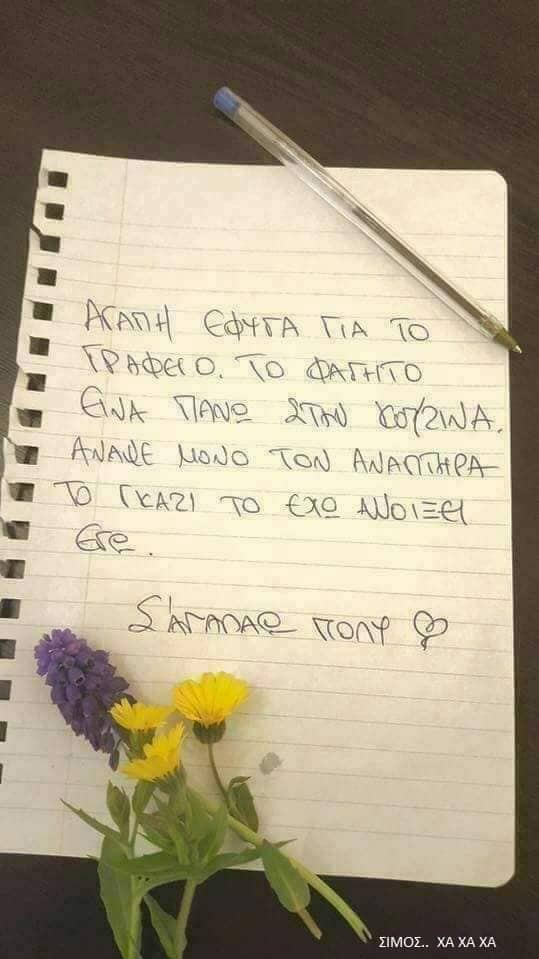 ΑΓΑΠΗ ΕΦΥΓΑ ΓΙΑ ΤΟ
ΓΡΑΦΕΙΟ. ΤΟ ΦΑΓΗΤΟ
ΕΙΝΑ ΠΑΝΩ ΣΤΗΝ ΚΟΥΖΙΝΑ.
ΑΝΑΨΕ ΜΟΝΟ ΤΟΝ ΑΝΑΠΤΗΡΑ
ΤΟ ΓΚΑΖΙ ΤΟ ΕΧΩ ΑΝΟΙΞΕΙ
ΕΓΩ.
Σ'ΑΓΑΠΑΩ ΠΟΛΥ
ΣΙΜΟΣ.. ΧΑ ΧΑ ΧΑ